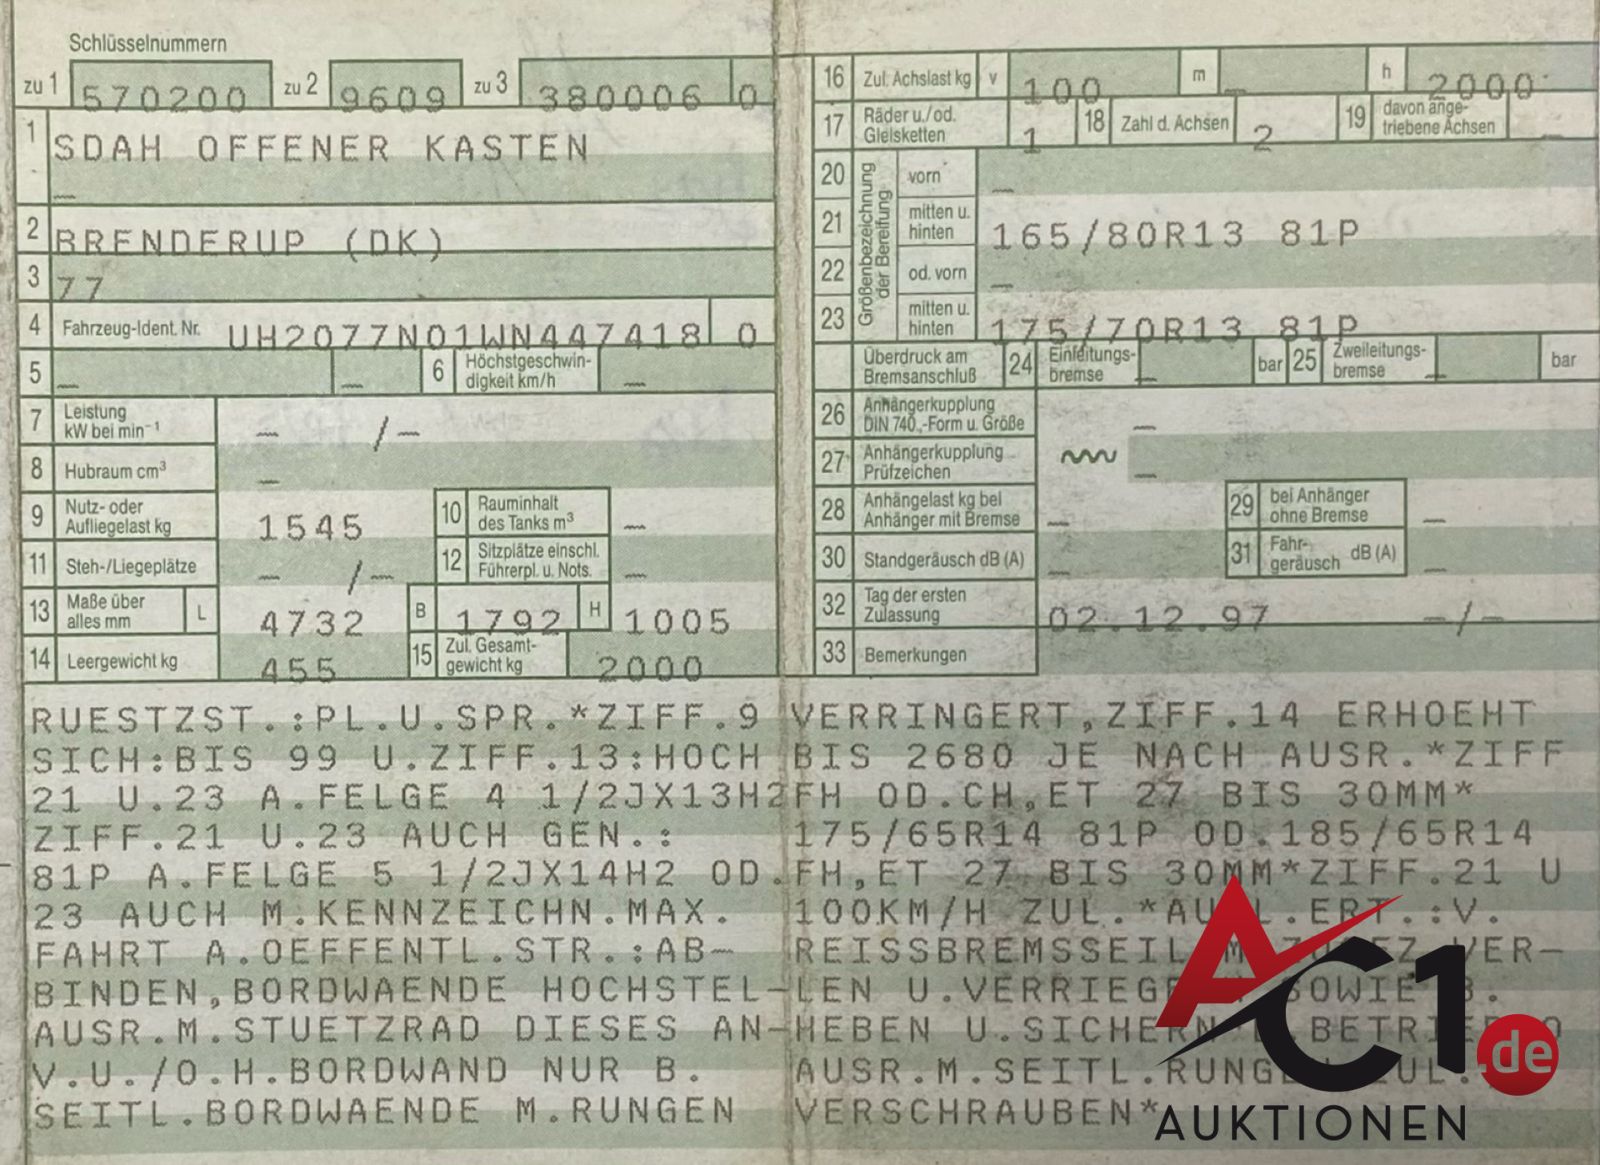 Schlüsselnummern
zu 1 570200 zu 2 9609 zu 3 380006 0
1 SDAH OFFENER KASTEN
2 BRENDERUP (DK)
3 77
4 Fahrzeug-Ident. Nr. UH2077N01WN447418 0
5 – – 6 Höchstgeschwin-
digkeit km/h –
7 Leistung
kW bei min⁻¹ – /–
8 Hubraum cm³ –
9 Nutz- oder
Aufliegelast kg 1545 10 Rauminhalt
des Tanks m³ –
11 Steh-/Liegeplätze – /– 12 Sitzplätze einschl.
Führerpl. u. Nots. –
13 Maße über
alles mm L 4732 B 1792 H 1005
14 Leergewicht kg 455 15 Zul. Gesamt-
gewicht kg 2000
16 Zul. Achslast kg v 100 m – h 2000
17 Räder u./od.
Gleisketten 1 18 Zahl d. Achsen 2 19 davon ange-
triebene Achsen –
Größenbezeichnung
der Bereifung
20 vorn –
21 mitten u.
hinten 165/80R13 81P
22 od. vorn –
23 mitten u.
hinten 175/70R13 81P
Überdruck am
Bremsanschluß 24 Einleitungs-
bremse – bar 25 Zweileitungs-
bremse – bar
26 Anhängerkupplung
DIN 740.,-Form u. Größe –
27 Anhängerkupplung
Prüfzeichen –
28 Anhängelast kg bei
Anhänger mit Bremse – 29 bei Anhänger
ohne Bremse –
30 Standgeräusch dB (A) – 31 Fahr-
geräusch dB (A) –
32 Tag der ersten
Zulassung 02.12.97 –/–
33 Bemerkungen
RUESTZST.:PL.U.SPR.*ZIFF.9 VERRINGERT,ZIFF.14 ERHOEHT
SICH:BIS 99 U.ZIFF.13:HOCH BIS 2680 JE NACH AUSR.*ZIFF
21 U.23 A.FELGE 4 1/2JX13H2FH OD.CH,ET 27 BIS 30MM*
ZIFF.21 U.23 AUCH GEN.: 175/65R14 81P OD.185/65R14
81P A.FELGE 5 1/2JX14H2 OD.FH,ET 27 BIS 30MM*ZIFF.21 U
23 AUCH M.KENNZEICHN.MAX. 100KM/H ZUL. .ERT.:V.
FAHRT A.OEFFENTL.STR.:AB- REISSBREMSSEIL VER-
BINDEN,BORDWAENDE HOCHSTEL-LEN U. SOWIE B.
AUSR.M.STUETZRAD DIESES AN-HEBEN U.SICHERN
V.U./O.H.BORDWAND NUR B. AUSR.M.SEITL.
SEITL.BORDWAENDE M.RUNGEN VERSCHRAUBEN*
AC1.de
AUKTIONEN